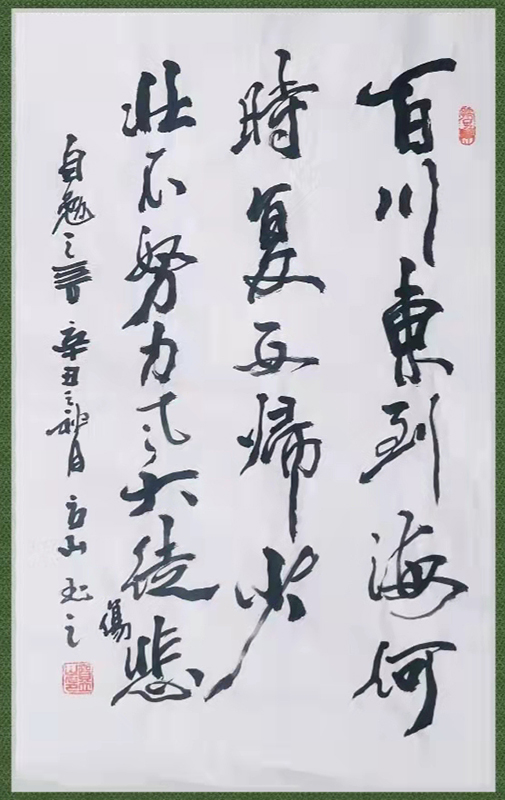 百川東到海何
時复西歸少
壯不努力老大徒悲
傷
自勉之言 辛丑之秋月 方山 之